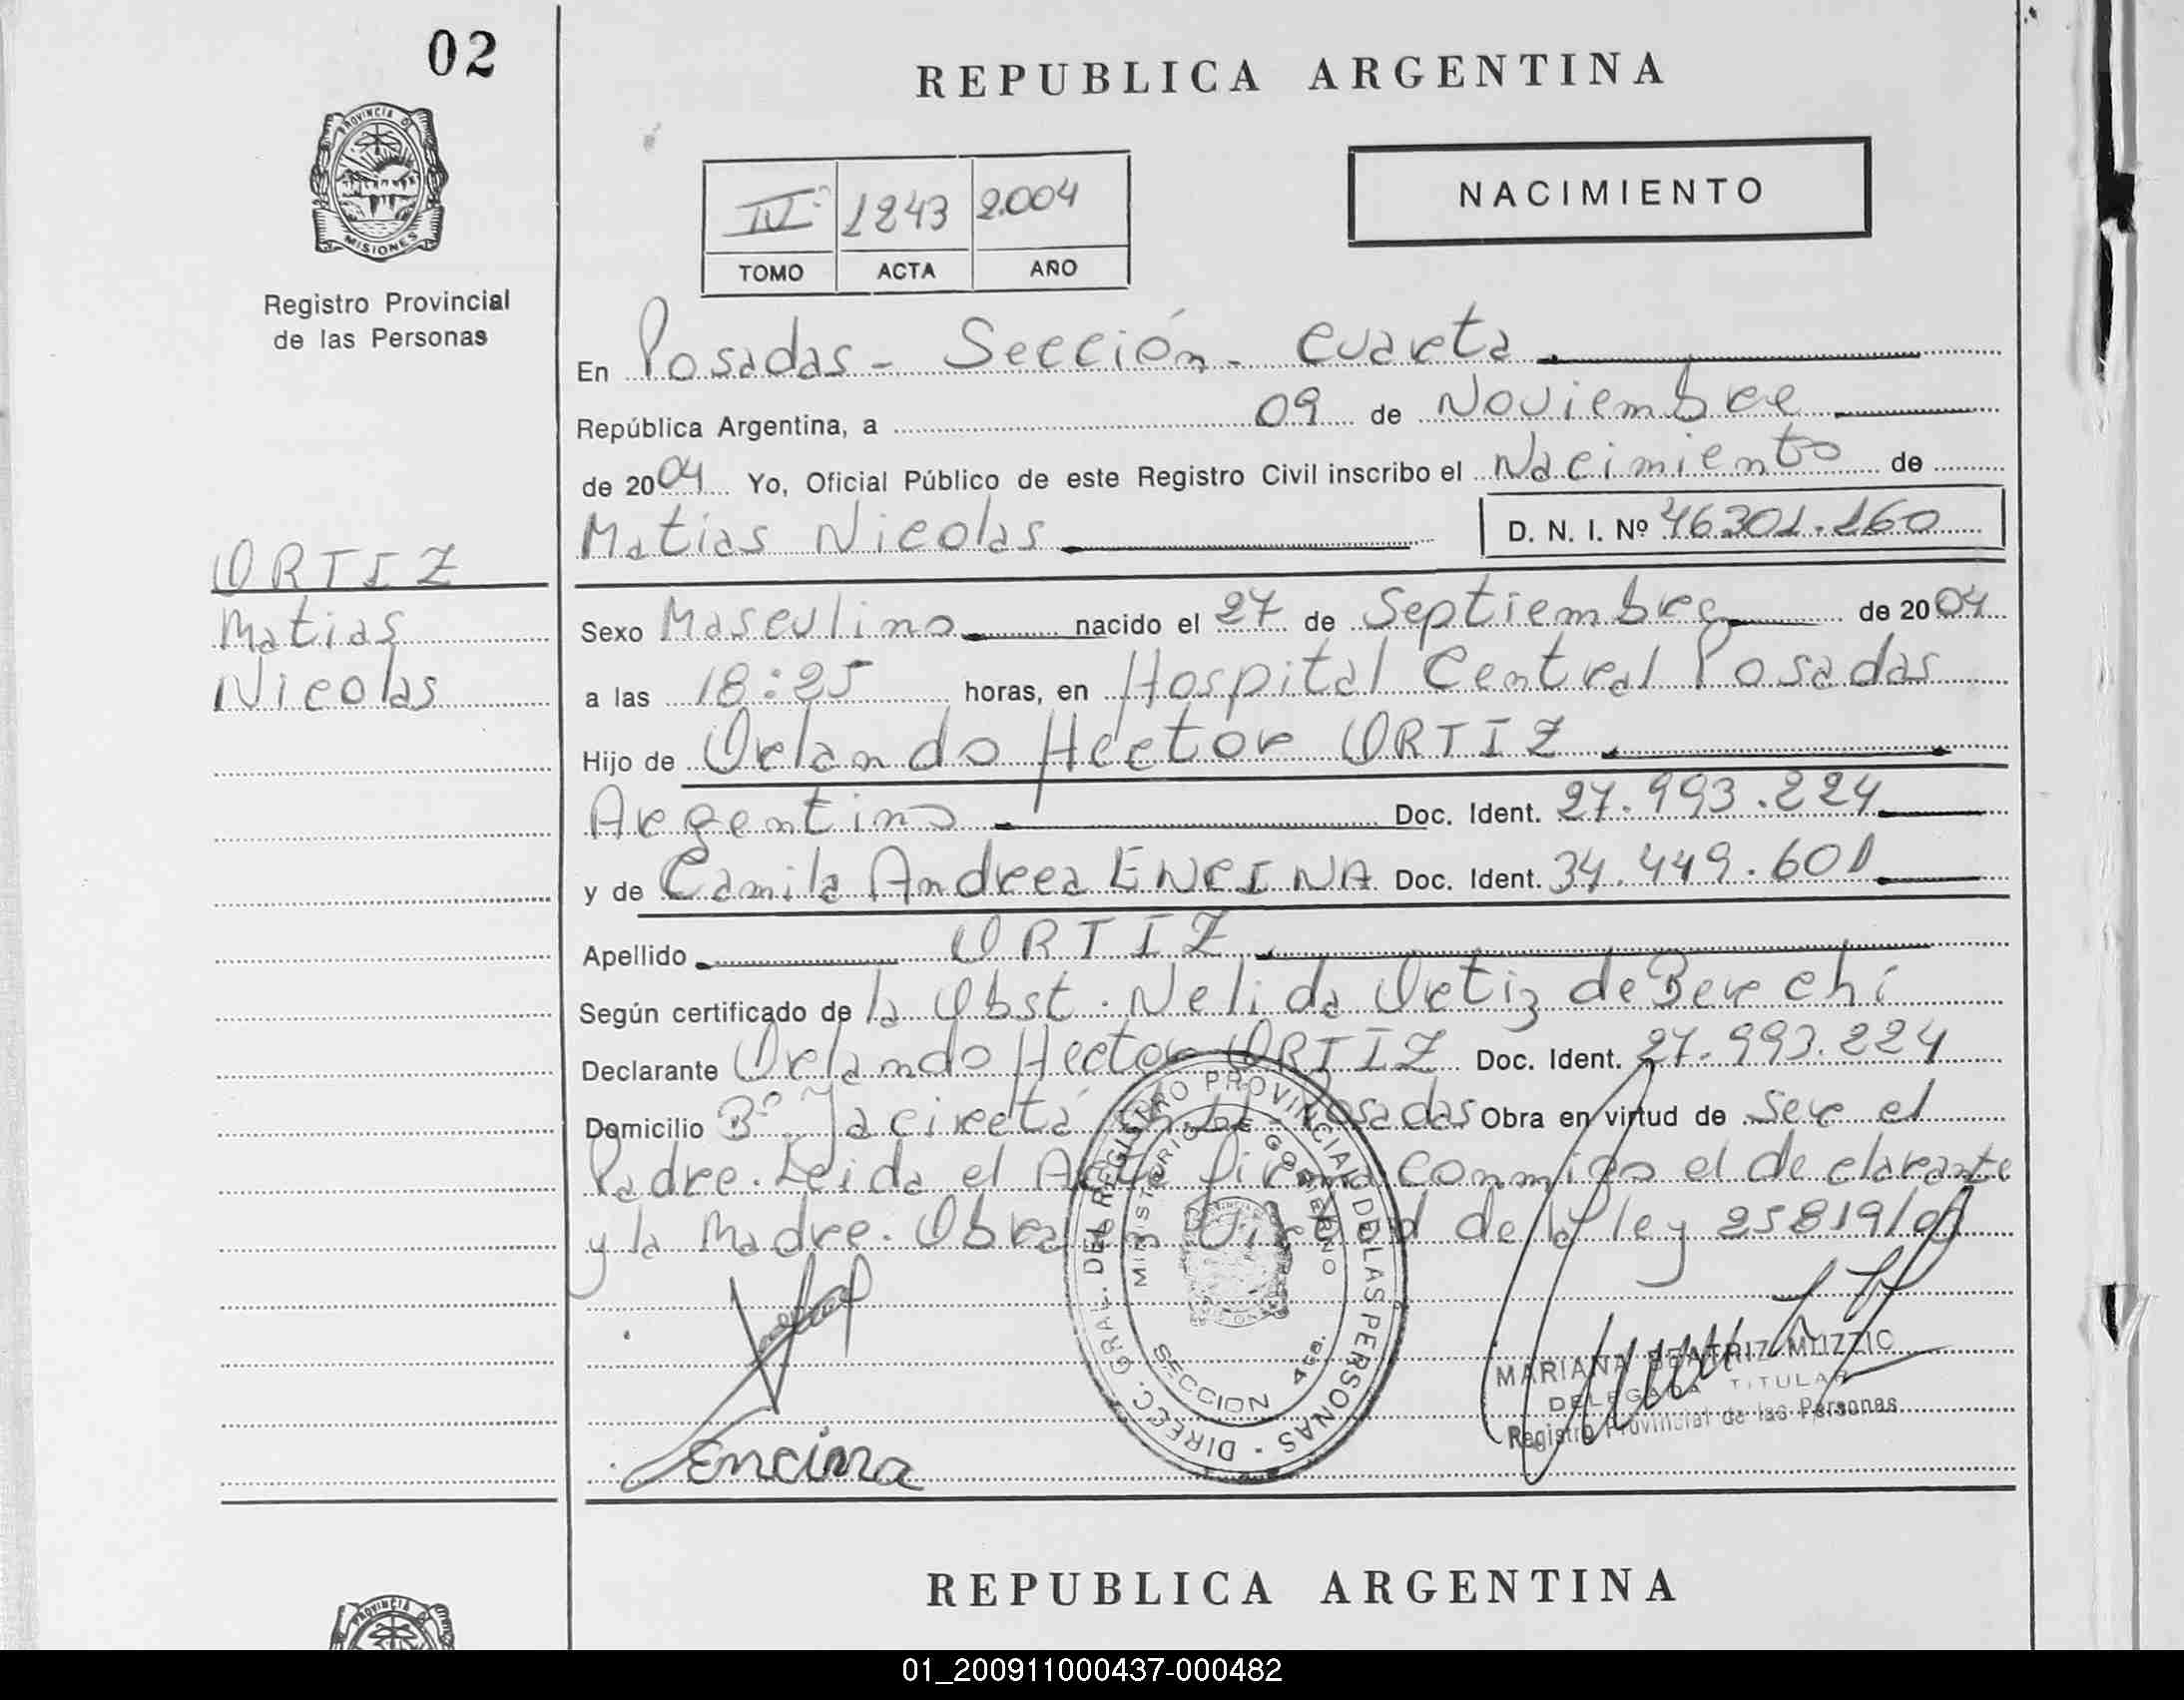 02
REPUBLICA ARGENTINA
PROVINCIA D
MISIONES
Registro Provincial
de las Personas
IVº 1243 2.004
TOMO ACTA AÑO
NACIMIENTO
En Posadas - Sección - Cuarta
República Argentina, a 09 de Noviembre
de 2004 Yo, Oficial Público de este Registro Civil inscribo el Nacimiento de
Matias Nicolas D. N. I. Nº 46301.160
ORTIZ
Matias
Nicolas
Sexo Masculino nacido el 27 de Septiembre de 2004
a las 18:25 horas, en Hospital Central Posadas
Hijo de Orlando Hector ORTIZ
Argentino Doc. Ident. 27.993.224
y de Camila Andrea ENCINA Doc. Ident. 34.449.601
Apellido ORTIZ
Según certificado de la Obst. Nelida Ortiz de Berechi
Declarante Orlando Hector ORTIZ Doc. Ident. 27.993.224
Domicilio Bº Jacireta Posadas Obra en virtud de Ser el
Padre. Leida el Acta firma conmigo el declarante
y la Madre. Obra en Virtud de la ley 25819/
DIREC. GRAL. DEL REGISTRO PROVINCIAL DE LAS PERSONAS
MINISTERIO DE GOBIERNO
SECCION 4ta.
MARIANA BEATRIZ MUZZIC
DELEGADA TITULAR
Registro Provincial de las Personas
Encina
REPUBLICA ARGENTINA
PROVINCIA D
01_200911000437-000482